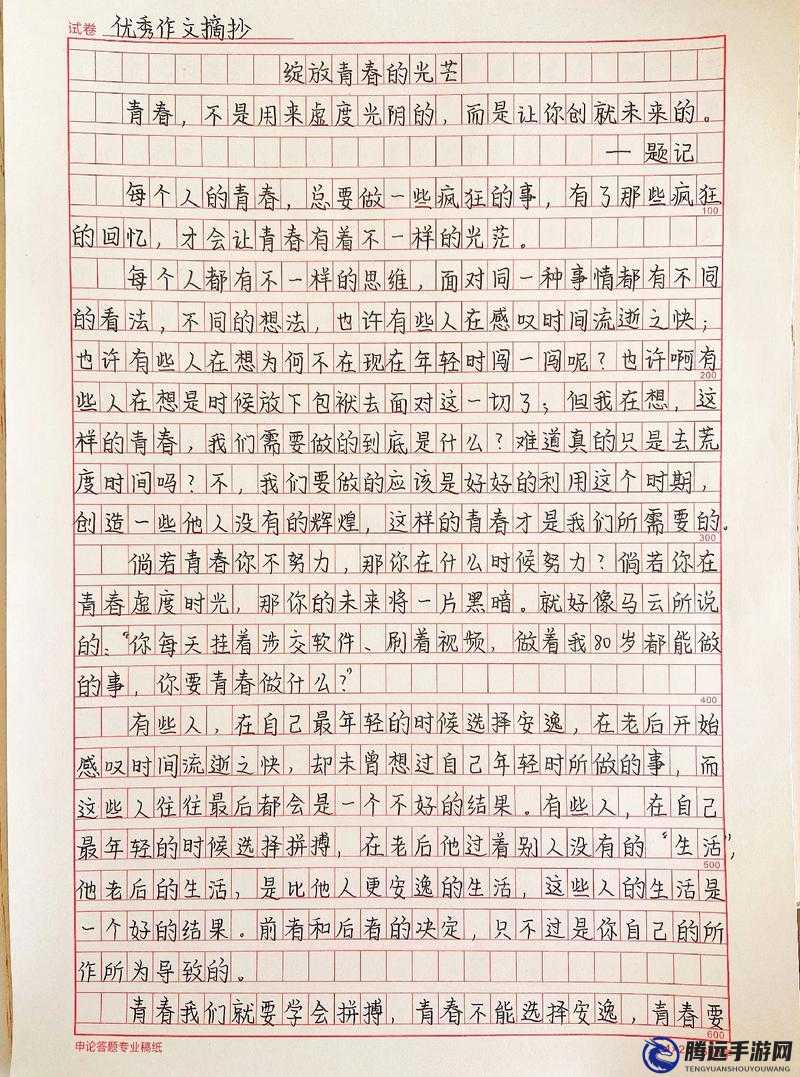 试卷 优秀作文摘抄
绽放青春的光芒
青春，不是用来虚度光阴的，而是让你创就未来的。
一题记
每个人的青春，总要做一些疯狂的事，有了那些疯狂
100
的回忆，才会让青春有着不一样的光茫。
每个人都有不一样的思维，面对同一种事情都有不同
的看法，不同的想法，也许有些人在感叹时间流逝之快；
也许有些人在想为何不在现在年轻时闯一闯呢？也许啊有
200
些人在想是时候放下包袱去面对这一切了；但我在想，这
样的青春，我们需要做的到底是什么？难道真的只是去荒
度时间吗？不，我们要做的应该是好好的利用这个时期，
创造一些他人没有的辉煌，这样的青春才是我们所需要的。
300
倘若青春你不努力，那你在什么时候努力？倘若你在
青春虚度时光，那你的未来将一片黑暗。就好像马云所说
的：“你每天挂着涉交软件、刷着视频，做着我80岁都能做
的事，你要青春做什么？”
400
有些人，在自己最年轻的时候选择安逸，在老后开始
感叹时间流逝之快，却未曾想过自己年轻时所做的事，而
这些人往往最后都会是一个不好的结果。有些人，在自己
最年轻的时候选择拼搏，在老后他过着别人没有的“生活”，
500
他老后的生活，是比他人更安逸的生活，这些人的生活是
一个好的结果。前者和后者的决定，只不过是你自己的所
作所为导致的。
青春我们就要学会拼搏，青春不能选择安逸，青春要
600
申论答题专业稿纸
腾远手游网
TENGYUANSHOUYOUWANG